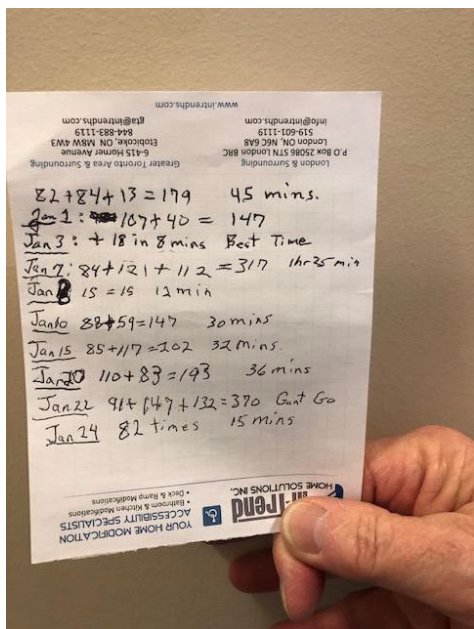 www.intrendhs.com
Greater Toronto Area & Surrounding
6-415 Horner Avenue
Etobicoke, ON M8W 4W3
844-883-1119
gta@intrendhs.com
London & Surrounding
P.O Box 25086 STN London BRC
London ON, N6C 6A8
519-601-1119
info@intrendhs.com
82+84+13=179 45 mins.
Jan 1: 107+40 = 147
Jan 3: + 18 in 8 mins Best Time
Jan 7: 84+121+112=317 1hr35 min
Jan 8 15=15 12 min
Jan10 88+59=147 30 mins
Jan 15 85+117=202 32 mins.
Jan 20 110+83=193 36 mins
Jan 22 91+147+132=370 Go
Jan 24 82 times 15 mins
YOUR HOME MODIFICATION
ACCESSIBILITY SPECIALISTS
• Bathroom & Kitchen Modifications
• Deck & Ramp Modifications
In-Trend
HOME SOLUTIONS INC.